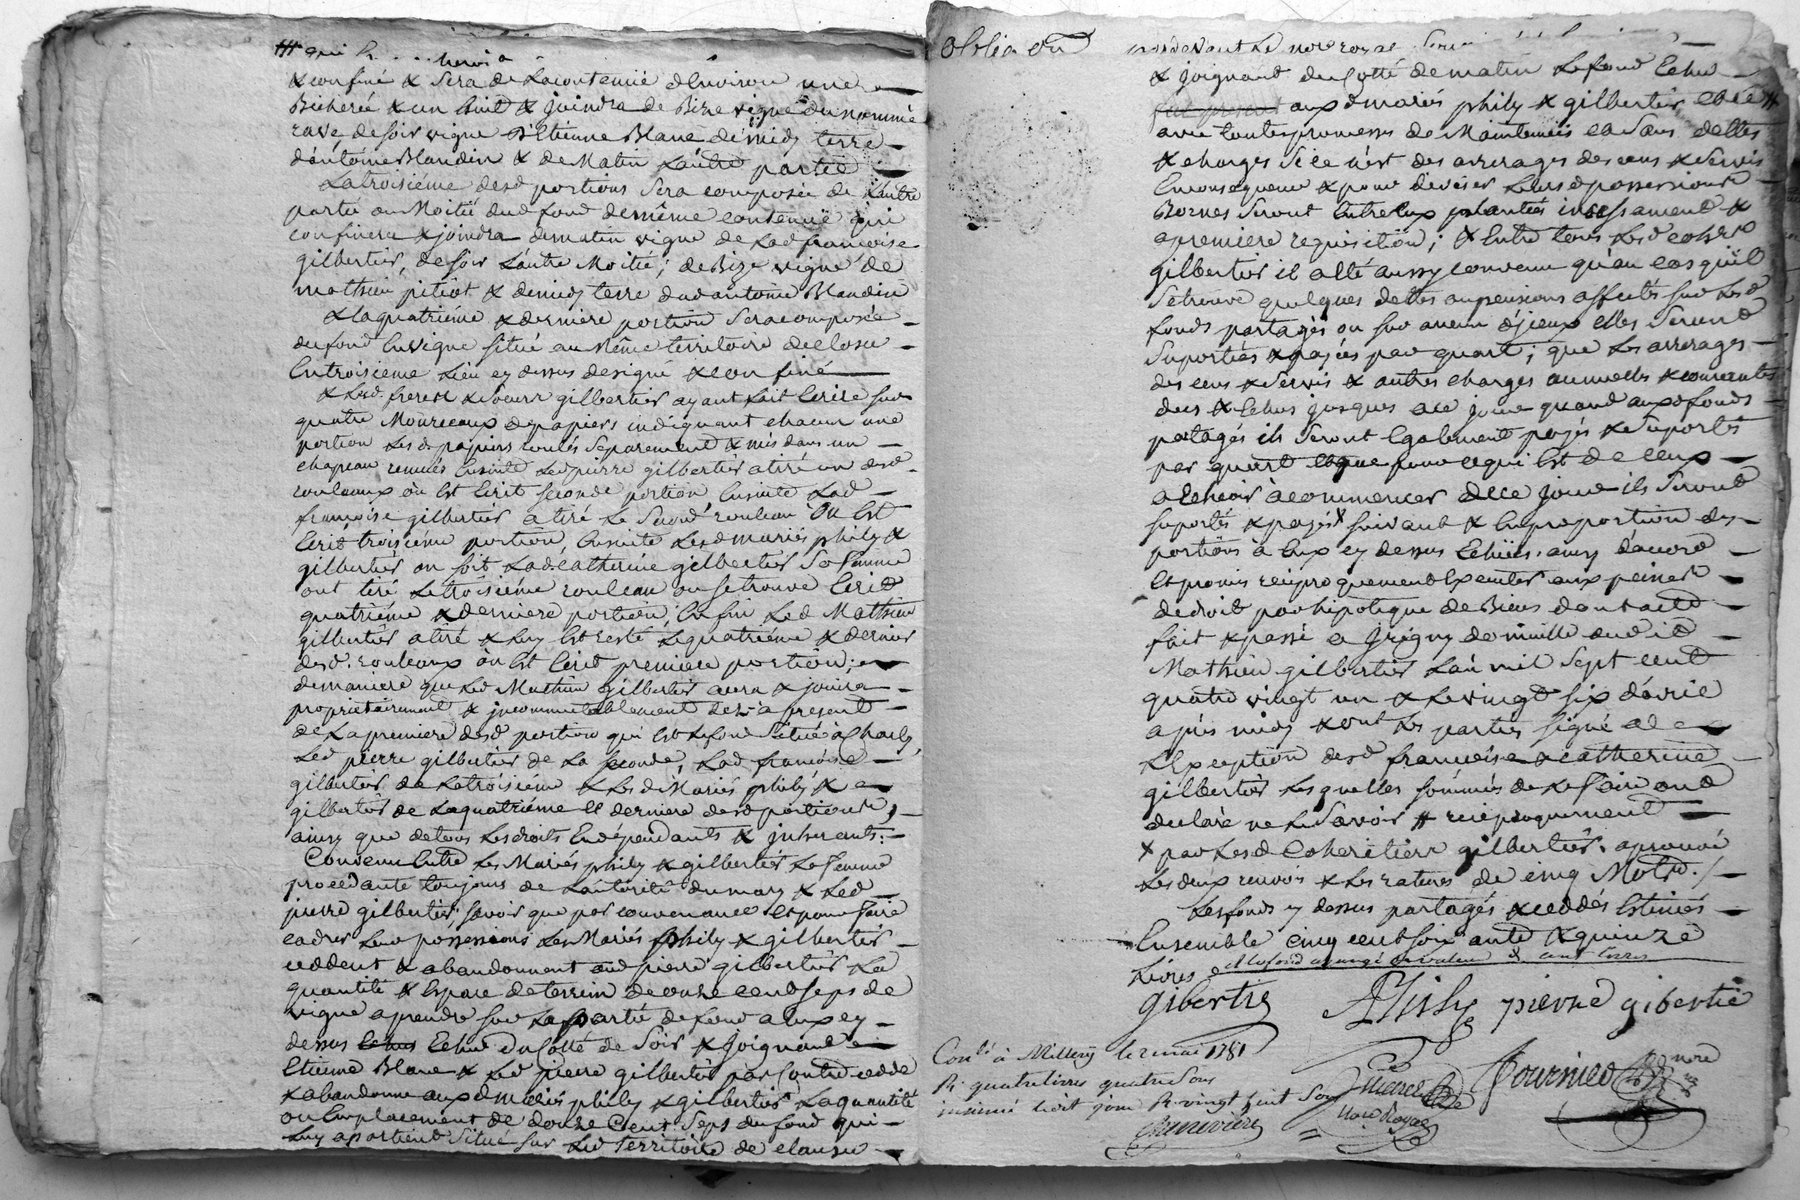 & confiné & Sera de la contenüe d'environ une
Bicherée & un huit & joindra de Bize vigne du nommé
rave, de soir vigne d'Etienne Blanc de midy terre
d'antoine Blandin & de Matin L'autre partie
La troisiéme desd portions Sera composée de L'autre
partie ou Moitié dud fond de même contenüe qui
confinera & joindra de matin vigne de Lad francoise
gilbertier, de soir L'autre Moitié; de Bize vigne de
mathieu pitiot & de midy terre dud antoine Blandin
& la quatrieme & derniere portion Sera composée
du fond En vigne situé au Même territoire de closu
En troisieme Lieu cy dessus designé & confiné
& Lesd. freres & soeurs gilbertier ayant fait Ecrire sur
quatre Mourceaux de papiers indiquant chacun une
portion Lesd. papiers roulés Separement & mis dans un
chapeau remués Ensuite Led pierre gilbertier a tiré un desd.
rouleaux où Est Ecrit seconde portion Ensuite Lad
françoise gilbertier a tiré Le Second rouleau Où Est
Ecrit troisiéme portion, Ensuite Lesd mariés phily &
gilbertier ou soit Lad catherine gilbertier Sa femme
ont tiré Le troisiéme rouleau ou se trouve Ecrit
quatriéme & derniere portion, Enfin Led Mathieu
gilbertier a tiré & Luy Est resté Le quatriéme & dernier
desd. rouleaux où Est Ecrit premiere portion;
de maniere que Led Mathieu gilbertier aura & jouira
propriétairement & jncommutablement des à present
de La premiere desd portion qui Est Le fond Situé à Charly,
Led pierre gilbertier de La seconde, Lad francoise
gilbertier de La troisiéme & Lesd Mariés phily &
gilbertier de La quatriéme et derniere desd portions,
ainsy que de tous Les droits En dépendants & jnherants.
Convenu Entre Les Mariés phily & gilbertier La femme
procédante toujours de L'autorité du mary & Led
pierre gilbertier savoir que par convenance Et pour faire
cadrer Leur possessions Les Mariés phily & gilbertier
ceddent & abandonnent aud pierre gilbertier La
quantité & Espace de terrein de onze cent seps de
vigne a prendre sur La partie de fond a Eux cy
dessus Echu du Cotté de Soir & Joignant
Etienne Blanc & Led pierre gilbertier par Contre cedde
& abandonne auxd mariés phily & gilbertier La quantité
ou Emplacement de douze Cent Seps du fond qui
Luy apartient Situé sur Led territoire de clausu
Obligaon
& joignant du Cotté de matin Le fond Echu
auxd mariés phily & gilbertier
avec toutes promesses de Maintenüe Et Sans dettes
& charges Si ce n'est des arrerages des cens & servis
En consequence & pour diviser Leursd possessions
Bornes Seront Entre Eux plantées incessament &
a premiere requisition; & Entre tous Lesd cohers
gilbertier il a Eté aussy convenu qu'au cas qu'il
Se trouve quelques dettes ou pensions affectés sur Lesd
fonds partagés ou sur aucun d'jceux elles Seront
Suportées & payées par quart; que Les arrerages
des cens & servis & autres charges annuelles & courantes
dus & Echus jusques a ce jour quand auxd fonds
partagés ils Seront Egalement payés & Suportés
par quart Et que pour ce qui Est de ceux
a Echeoir à commencer de ce jour ils Seront
suportés & payés suivant & En proportion des
portions à Eux cy dessus Echües. ainsy d'acord
Et promis reciproquement Executer aux peines
de droit par hipoteque de Biens dont acte
fait & passé a jrigny domicille dud
Mathieu gilbertier L'an mil Sept cent
quatre vingt un & Le vingt six d'avril
après midy & ont Les parties signé
L'Exception desd françoise & catherine
gilbertier Lesquelles sommés de Le faire ont
declaré ne Le Savoir # reciproquement
x par Lesd Coheritiers gilbertier. aprouvé
Les deux renvois & Les ratures de cinq Mots./
Les fonds cy dessus partagés & ceddés Estimés
Ensemble cinq cent soixante & quinze
Livres
gibertie APhily pierre gibertie
Conlé à Millery le 2 mai 1781
R. quatre livres quatre sous
insinué led jour R. vingt huit Sous
Chenevière
nore Royal
fournier
nore